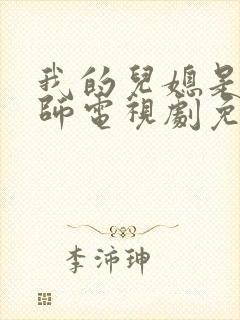 我的兒媳是
師電視劇免
李沛珅